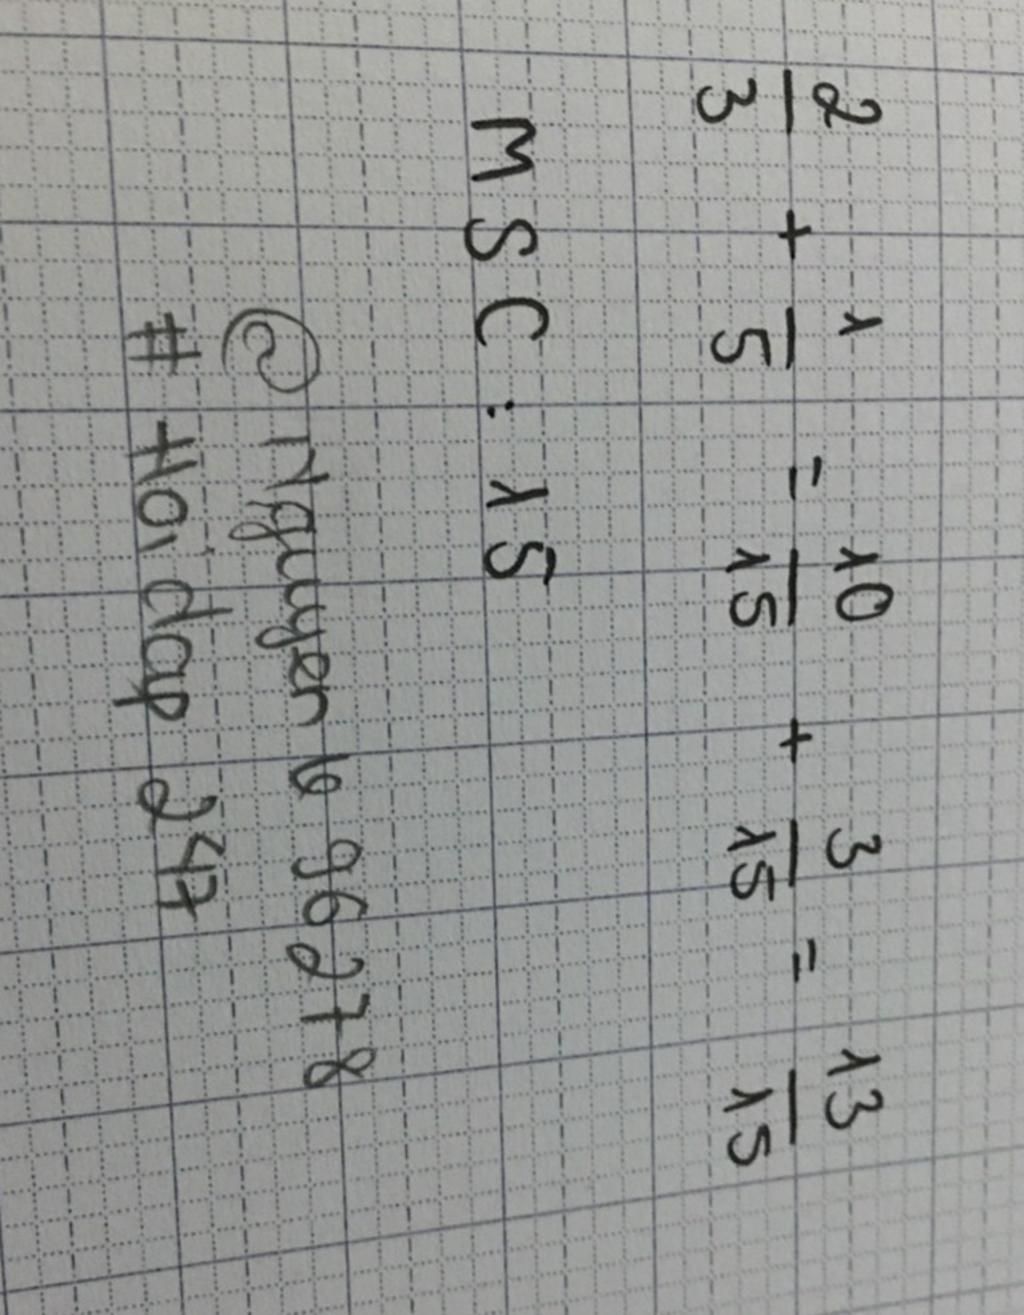 2/3 + 1/5 = 10/15 + 3/15 = 13/15
MSC : 15
@Nguyen696278
# Hoidap247